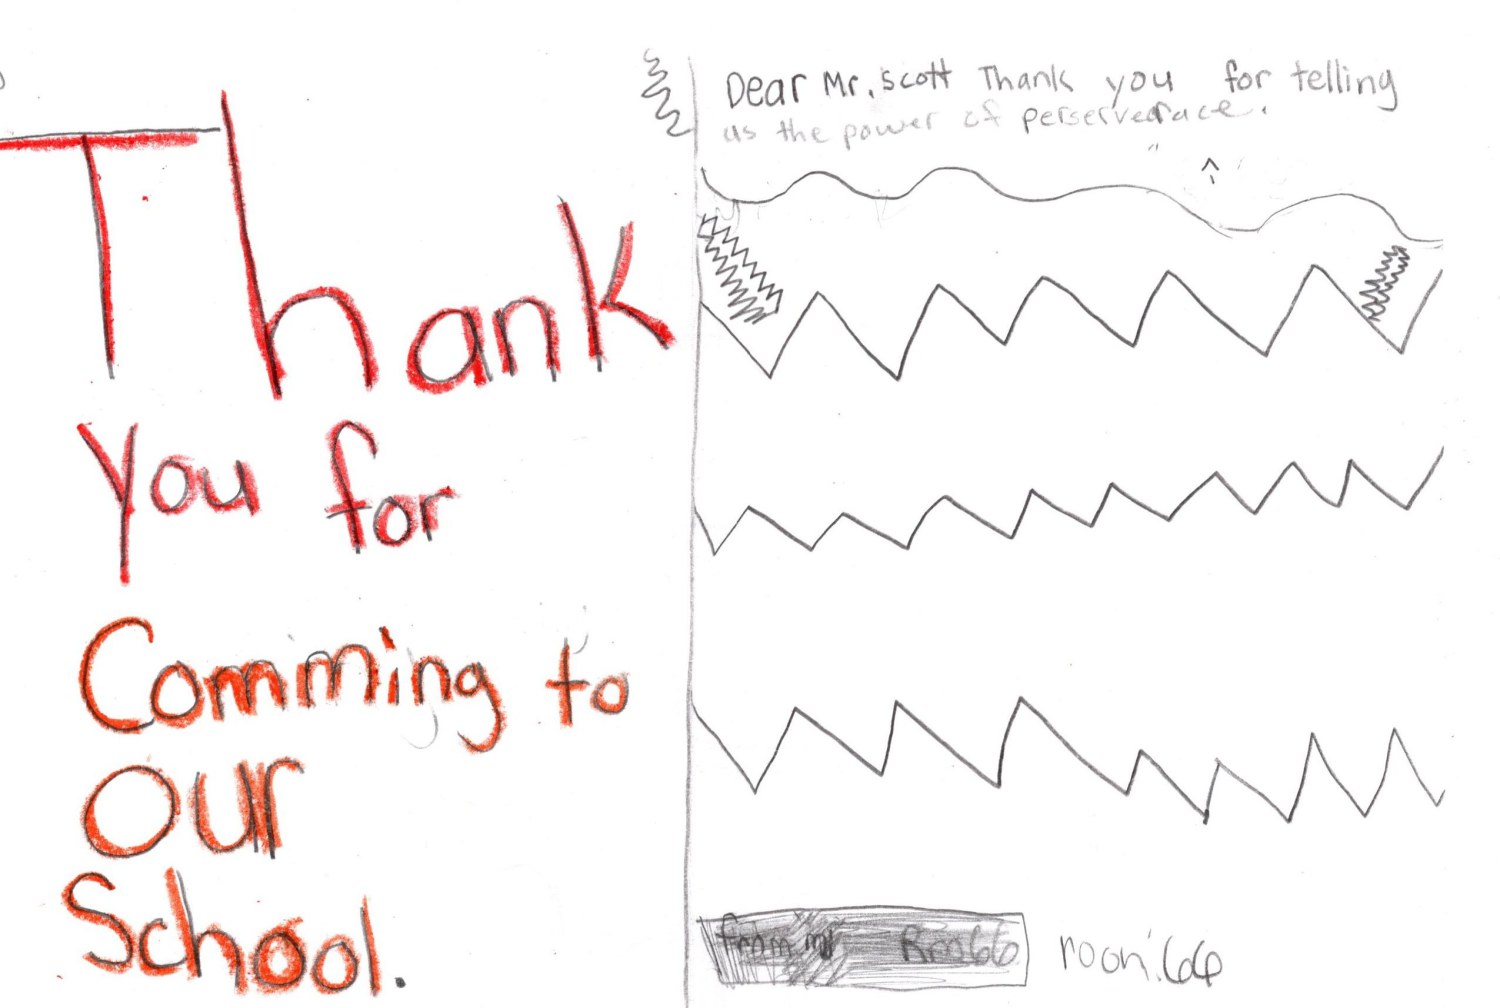 Thank
you for
Comming to
our
School.
Dear Mr. Scott Thank you for telling
us the power of perserverace.
from
room 66